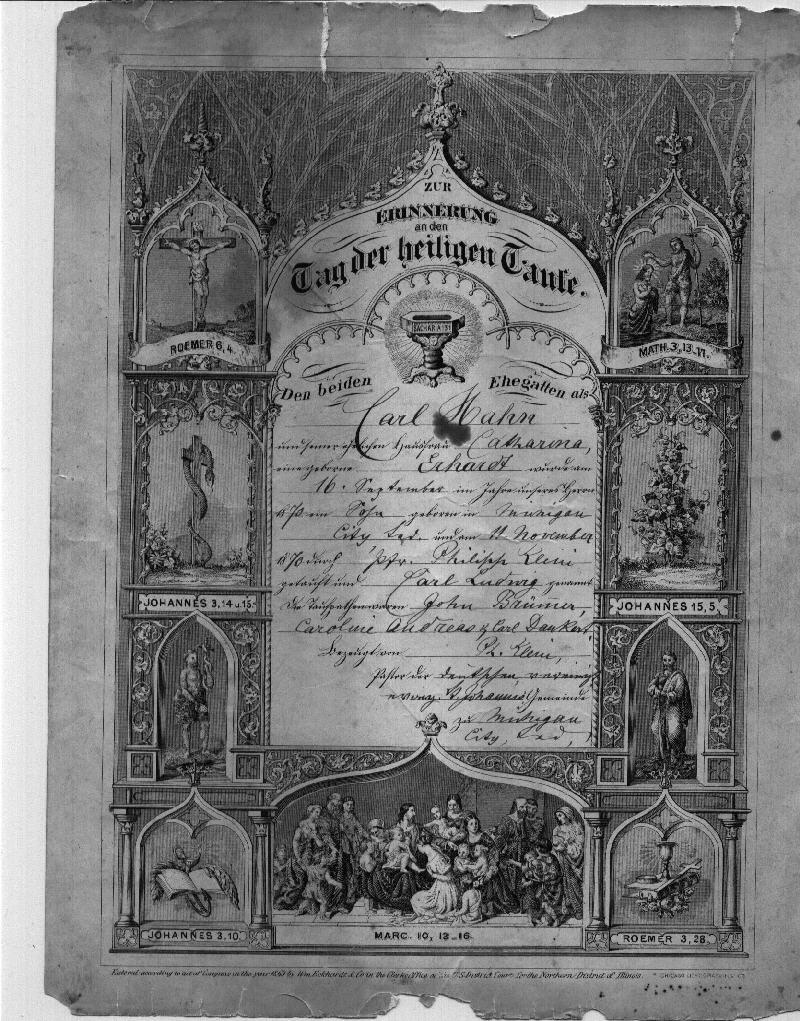 ZUR
ERINNERUNG
an den
Tag der heiligen Taufe.
SACHARJA 13 1
ROEMER 6, 4.
MATH. 3, 13_17.
Den beiden Ehegatten als
Carl Hahn
und seiner ehelichen Hausfrau Catharina,
eine geborne Erhardt wurde am
16. September im Jahre unseres Herrn
ein Sohn geboren in Michigan
City Ind. und am November
durch Pfr. Philipp Klein
getauft und Carl Ludwig genannt
Die Taufpathen waren John Brümer,
JOHANNES 3, 14 u. 15.
JOHANNES 15, 5.
Caroline Andreas & Carl Dankert,
Bezeugt von Ph. Klein,
Pastor der deutschen vereinigt
evang. St. Johannes Gemeinde
zu Michigan
City, Ind.,
JOHANNES 3, 10.
MARC. 10, 13_16.
ROEMER 3, 28.
Entered according to act of Congress in the year by Wm. Eckhardt & Co. in the Clerks Office of the U.S. District Court for the Northern District of Illinois.
CHICAGO LITHOGRAPHING CO.